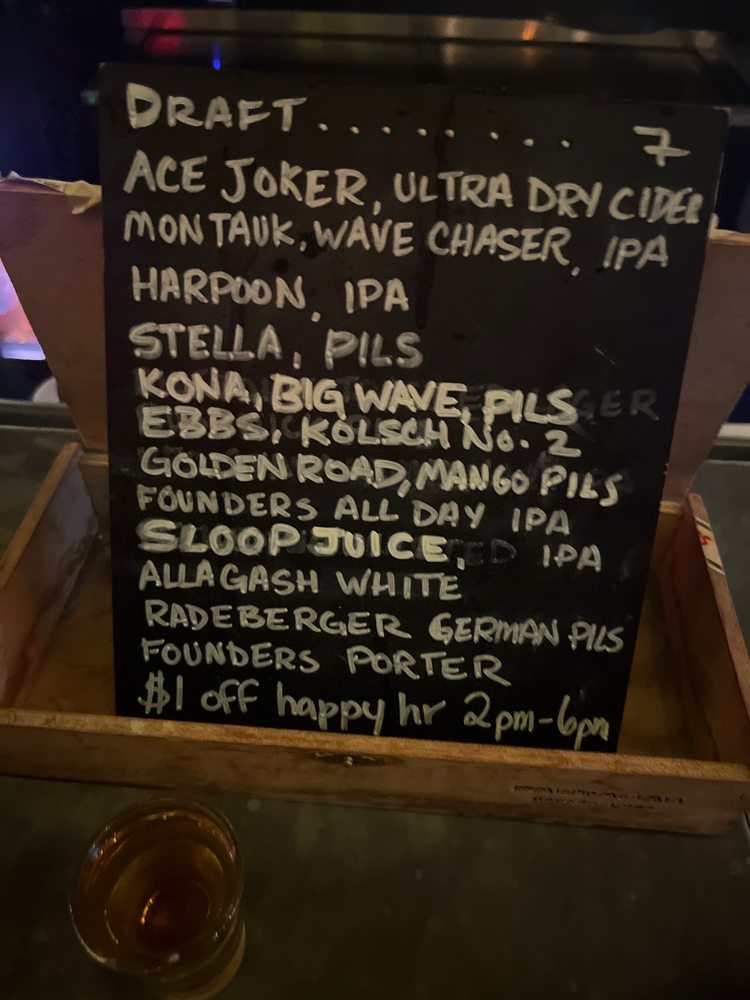 DRAFT........ 7
ACE JOKER, ULTRA DRY CIDER
MONTAUK, WAVE CHASER, IPA
HARPOON, IPA
STELLA, PILS
KONA, BIG WAVE, PILS
EBBS, KOLSCH No. 2
GOLDEN ROAD, MANGO PILS
FOUNDERS ALL DAY IPA
SLOOP JUICE, IPA
ALLAGASH WHITE
RADEBERGER GERMAN PILS
FOUNDERS PORTER
$1 off happy hr 2pm-6pm